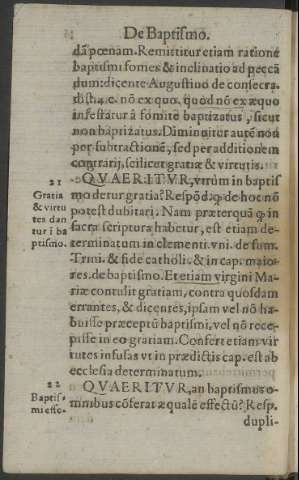 De Baptismo.
dā pœnam. Remittitur etiam ratione
baptismi fomes & inclinatio ad peccā
dum: dicente Augustino de consecra.
dist. 4. c. nō ex quo, quòd nō ex æquo
infestatur à fomite baptizatus, sicut
non baptizatus. Diminuitur autē non
per subtractionē, sed per additionem
contrarij, scilicet gratiæ & virtutis.
21
Gratia
& virtu
tes dan
tur ĩ ba
ptismo.
QVAERITVR, vtrùm in baptis
mo detur gratia? Respōd. ꝙ de hoc nō
potest dubitari. Nam præterquā ꝙ in
sacra scriptura habetur, est etiam de-
terminatum in clementi. vni. de sum.
Trini. & fide catholi. & in cap. maio-
res. de baptismo. Et etiam virgini Ma-
riæ contulit gratiam, contra quosdam
errantes, & dicentes, ipsam vel nō ha-
buisse præceptū baptismi, vel nō rece-
pisse in eo gratiam. Confert etiam vir
tutes infusas vt in prædictis cap. est ab
ecclesia determinatum.
22
Baptis-
mi effe-
QVAERITVR, an baptismus o-
mnibus cōferat æqualē effectū? Resp.
dupli-